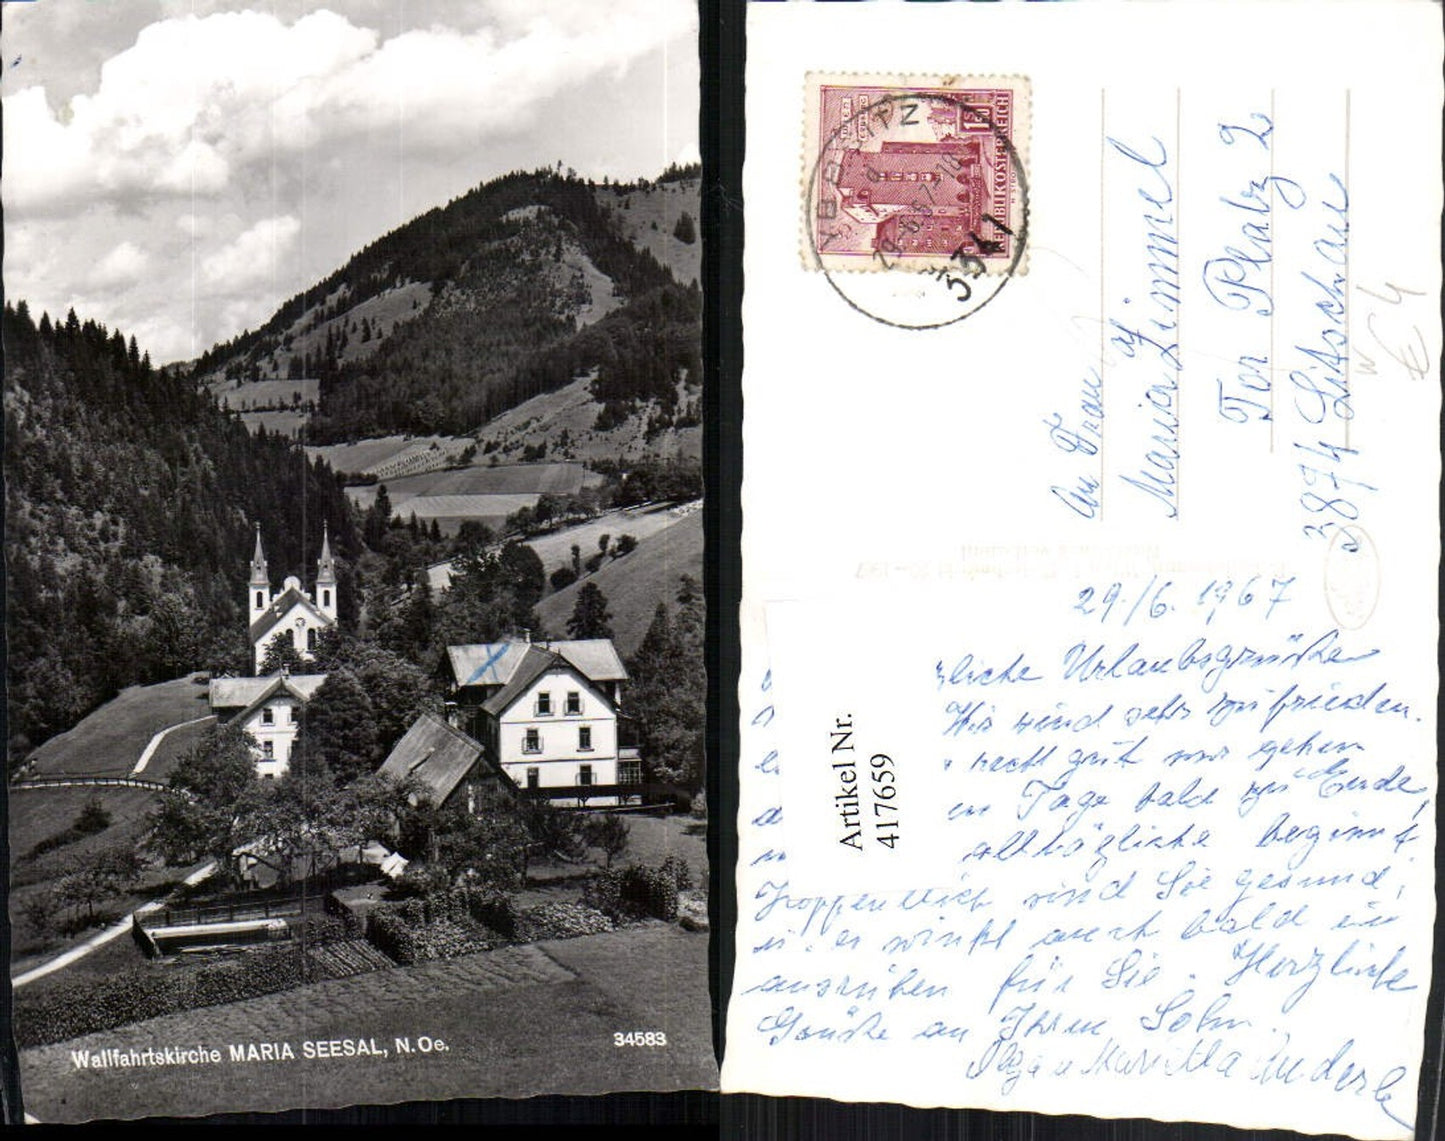 Wallfahrtskirche MARIA SEESAL, N.Oe.
34583
1.50
REPUBLIK ÖSTERREICH
3341
An Frau
Maria Zimmel
Tor Platz 2
3874 Litschau
W
€ 4
29./6. 1967
liche Urlaubsgrüße
Wir sind sehr zufrieden.
recht gut nur gehen
Tage bald zu Ende,
alltägliche beginnt
Hoffentlich sind Sie gesund,
u. es winkt auch bald ein
ausruhen für Sie. Herzliche
Grüße an Ihren Sohn.
Olga u Marietta
Artikel Nr.
417659